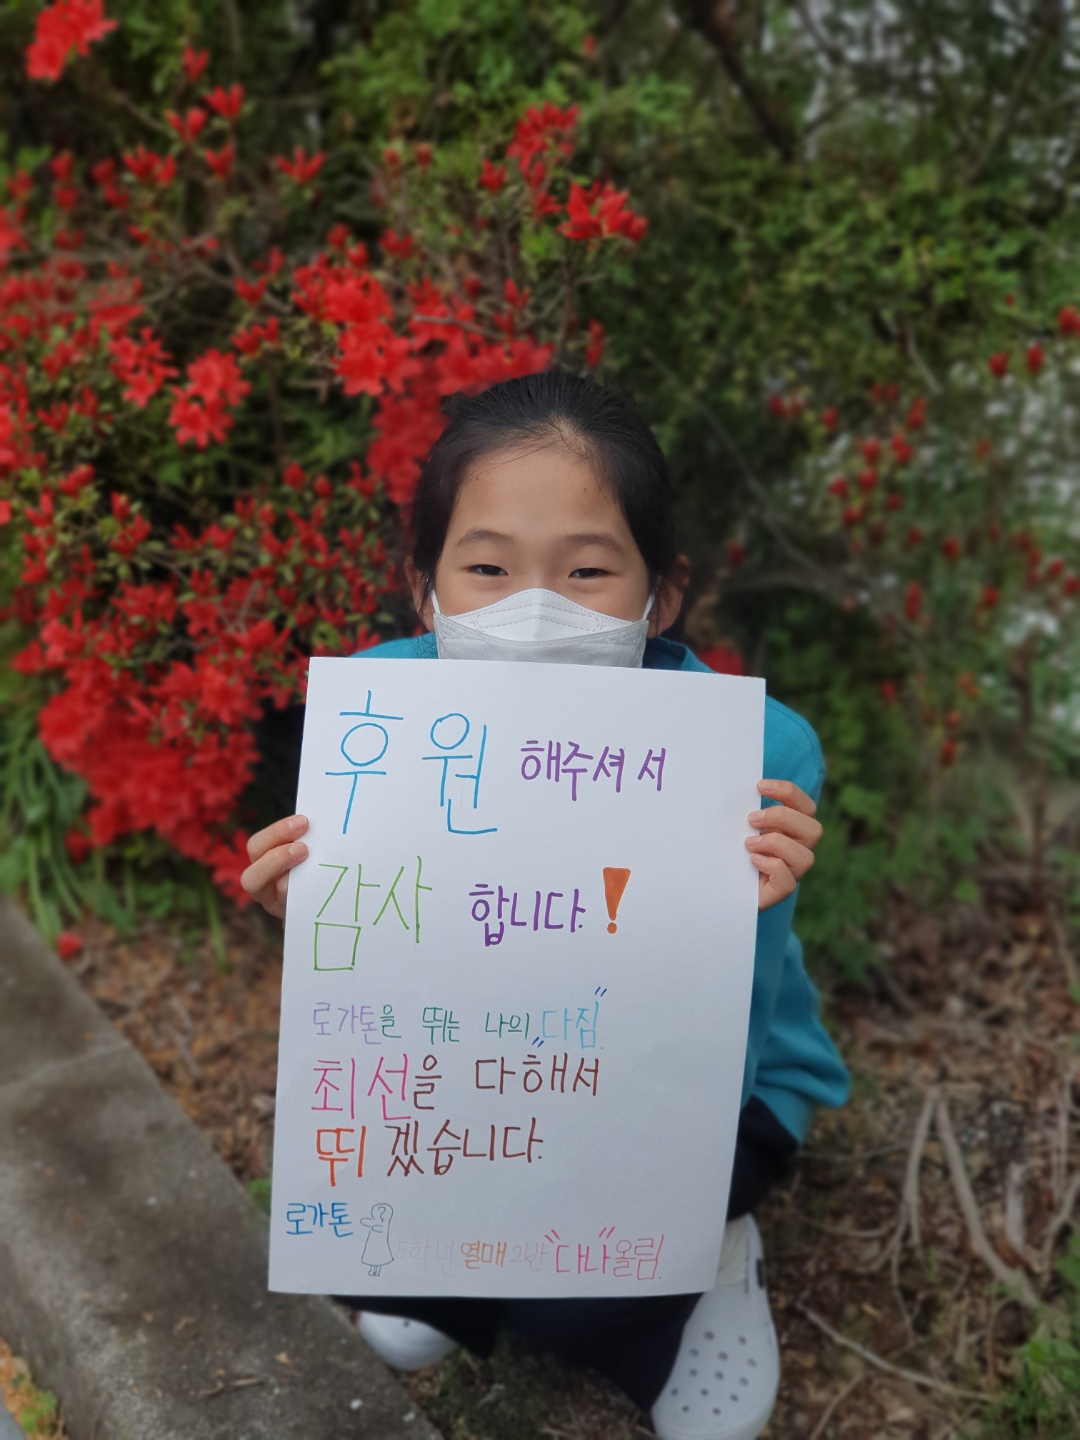 후원 해주셔서
감사 합니다!
로가톤을 뛰는 나의 "다짐"
최선을 다해서
뛰겠습니다.
로가톤
5학년 열매 2반 "다나"올림.